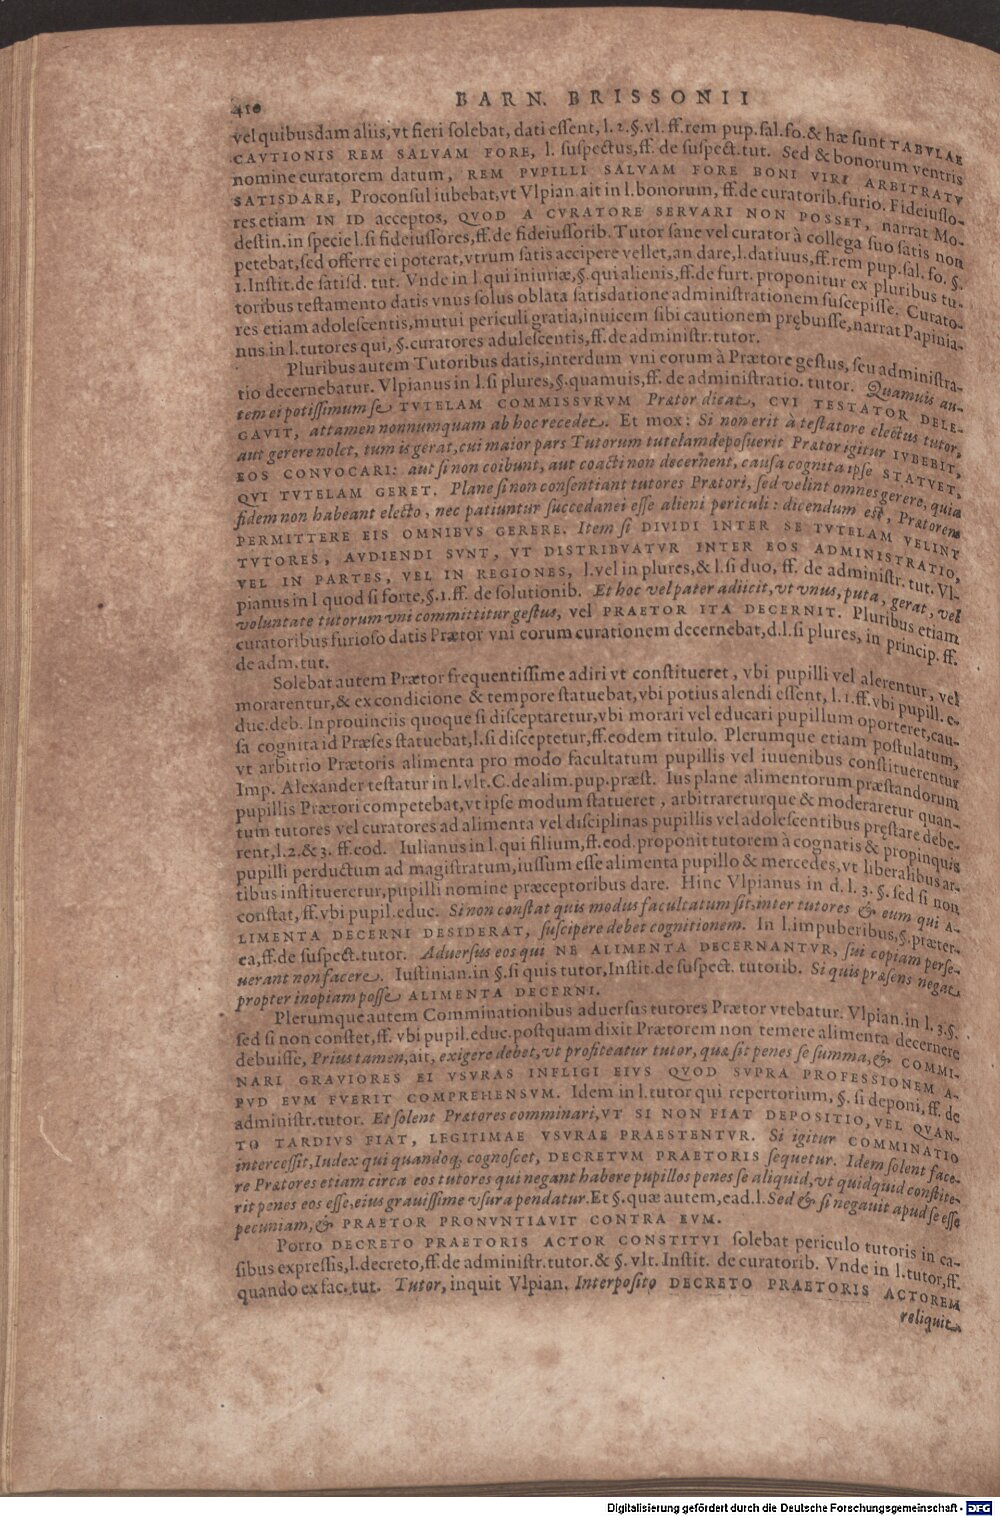 410 BARN. BRISSONII
vel quibusdam aliis, vt fieri solebat, dati essent, l. 2. §. vl. ff. rem pup. sal. fo. & hæ sunt TABVLAE
CAVTIONIS REM SALVAM FORE, l. suspectus, ff. de suspect. tut. Sed & bonorum ventris
nomine curatorem datum, REM PVPILLI SALVAM FORE BONI VIRI ARBITRATV
SATISDARE, Proconsul iubebat, vt Vlpian. ait in l. bonorum, ff. de curatorib. furio. Fideiusso-
res etiam IN ID acceptos, QVOD A CVRATORE SERVARI NON POSSET, narrat Mo-
destin. in specie l. si fideiussores, ff. de fideiussorib. Tutor sane vel curator à collega suo satis non
petebat, sed offerre ei poterat, vtrum satis accipere vellet, an dare, l. datiuus, ff. rem pup. sal. fo. §.
1. Instit. de satisd. tut. Vnde in l. qui iniuriæ, §. qui alienis, ff. de furt. proponitur ex pluribus tu-
toribus testamento datis vnus solus oblata satisdatione administrationem suscepisse. Curato-
res etiam adolescentis, mutui periculi gratia, inuicem sibi cautionem prębuisse, narrat Papinia-
nus in l. tutores qui, §. curatores adulescentis, ff. de administr. tutor.
Pluribus autem Tutoribus datis, interdum vni eorum à Prætore gestus, seu administra-
tio decernebatur. Vlpianus in l. si plures, §. quamuis, ff. de administratio. tutor. Quamuis au-
tem ei potissimum se TVTELAM COMMISSVRVM Prætor dicat, CVI TESTATOR DELE-
GAVIT, attamen nonnumquam ab hoc recedet. Et mox: Si non erit à testatore electus tutor,
aut gerere nolet, tum is gerat, cui maior pars Tutorum tutelam deposuerit Prætor igitur IVBEBIT,
EOS CONVOCARI: aut si non coibunt, aut coacti non decernent, causa cognita ipse STATVET,
QVI TVTELAM GERET. Plane si non consentiant tutores Prætori, sed velint omnes gerere, quia
fidem non habeant electo, nec patiuntur succedanei esse alieni periculi: dicendum est, Prætorem
PERMITTERE EIS OMNIBVS GERERE. Item si DIVIDI INTER SE TVTELAM VELINT
TVTORES, AVDIENDI SVNT, VT DISTRIBVATVR INTER EOS ADMINISTRATIO,
VEL IN PARTES, VEL IN REGIONES, l. vel in plures, & l. si duo, ff. de administr. tut. Vl-
pianus in l quod si forte, §. 1. ff. de solutionib. Et hoc vel pater adiicit, vt vnus, puta, gerat, vel
voluntate tutorum vni committitur gestus, vel PRAETOR ITA DECERNIT. Pluribus etiam
curatoribus furioso datis Prætor vni eorum curationem decernebat, d. l. si plures, in princip. ff.
de adm. tut.
Solebat autem Prætor frequentissime adiri vt constitueret, vbi pupilli vel alerentur, vel
morarentur, & ex condicione & tempore statuebat, vbi potius alendi essent, l. 1. ff. vbi pupill. e-
duc. deb. In prouinciis quoque si disceptaretur, vbi morari vel educari pupillum oporteret, cau-
sa cognita id Præses statuebat, l. si disceptetur, ff. eodem titulo. Plerumque etiam postulatum,
vt arbitrio Prætoris alimenta pro modo facultatum pupillis vel iuuenibus constituerentur
Imp. Alexander testatur in l. vlt. C. de alim. pup. præst. Ius plane alimentorum præstandorum
pupillis Prætori competebat, vt ipse modum statueret, arbitrareturque & moderaretur quan-
tum tutores vel curatores ad alimenta vel disciplinas pupillis vel adolescentibus pręstare debe-
rent, l. 2. & 3. ff. eod. Iulianus in l. qui filium, ff. eod. proponit tutorem à cognatis & propinquis
pupilli perductum ad magistratum, iussum esse alimenta pupillo & mercedes, vt liberalibus ar-
tibus institueretur, pupilli nomine præceptoribus dare. Hinc Vlpianus in d. l. 3. §. sed si non
constat, ff. vbi pupil. educ. Si non constat quis modus facultatum sit, inter tutores & eum qui A-
LIMENTA DECERNI DESIDERAT, suscipere debet cognitionem. In l. impuberibus, §. præter-
ea, ff. de suspect. tutor. Aduersus eos qui NE ALIMENTA DECERNANTVR, sui copiam perse-
uerant non facere. Iustinian. in §. si quis tutor, Instit. de suspect. tutorib. Si quis præsens negat
propter inopiam posse ALIMENTA DECERNI.
Plerumque autem Comminationibus aduersus tutores Prætor vtebatur. Vlpian. in l. 3. §.
sed si non constet, ff. vbi pupil. educ. postquam dixit Prætorem non temere alimenta decernere
debuisse, Prius tamen, ait, exigere debet, vt profiteatur tutor, quæ sit penes se summa, & COMMI-
NARI GRAVIORES EI VSVRAS INFLIGI EIVS QVOD SVPRA PROFESSIONEM A-
PVD EVM FVERIT COMPREHENSVM. Idem in l. tutor qui repertorium, §. si deponi, ff. de
administr. tutor. Et solent Prætores comminari, VT SI NON FIAT DEPOSITIO, VEL QVAN-
TO TARDIVS FIAT, LEGITIMAE VSVRAE PRAESTENTVR. Si igitur COMMINATIO
intercessit, Iudex qui quandoq; cognoscet, DECRETVM PRAETORIS sequetur. Idem solent face-
re Prætores etiam circa eos tutores qui negant habere pupillos penes se aliquid, vt quidquid constite-
rit penes eos esse, eius grauissime vsura pendatur. Et §. quæ autem, ead. l. Sed & si negauit apud se esse
pecuniam, & PRAETOR PRONVNTIAVIT CONTRA EVM.
Porro DECRETO PRAETORIS ACTOR CONSTITVI solebat periculo tutoris in ca-
sibus expressis, l. decreto, ff. de administr. tutor. & §. vlt. Instit. de curatorib. Vnde in l. tutor, ff.
quando ex fac. tut. Tutor, inquit Vlpian. Interposito DECRETO PRAETORIS ACTOREM
reliquit
Digitalisierung gefördert durch die Deutsche Forschungsgemeinschaft - DFG